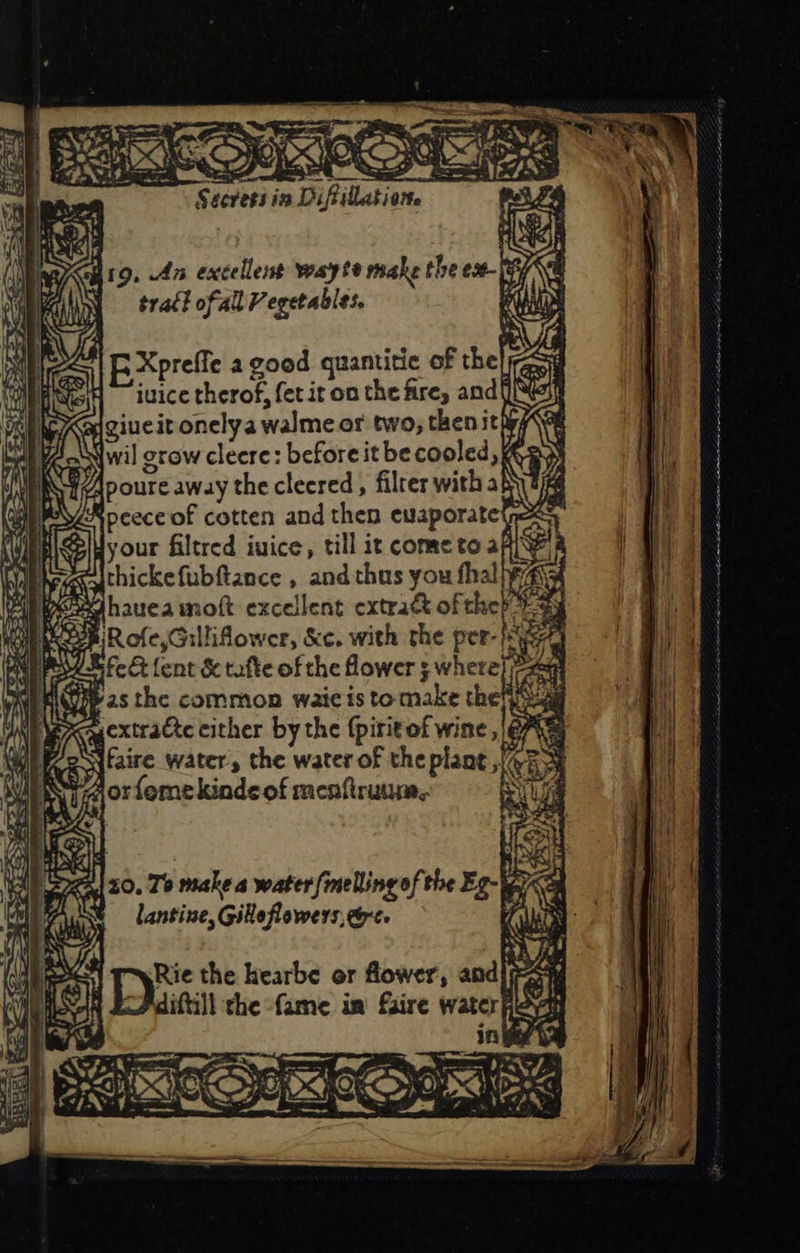 Secrets in Diſtillation.
19. An excellent way to make the ex-
tract of all Vegetables.
EXpreſſe a good quantitie of the
iuice therof, ſet it on the fire, and
giue it onely a walme or two, then it
wil grow cleere: before it be cooled,
poure away the cleered, filter with a
peece of cotten and then euaporate
your filtred iuice, till it come to a
thicke ſubſtance, and thus you ſhal
haue a moſt excellent extract of the
Roſe, Gilliflower, &c. with the per-
fect ſent & taſte of the flower; where
as the common waie is to make the
extracte either by the ſpirit of wine,
faire water, the water of the plant,
or ſome kinde of menſtruum.
20. To make a water ſmelling of the Eg-
lantine, Gilloflowers, &c.
DRie the hearbe or flower, and
diſtill the ſame in faire water
in